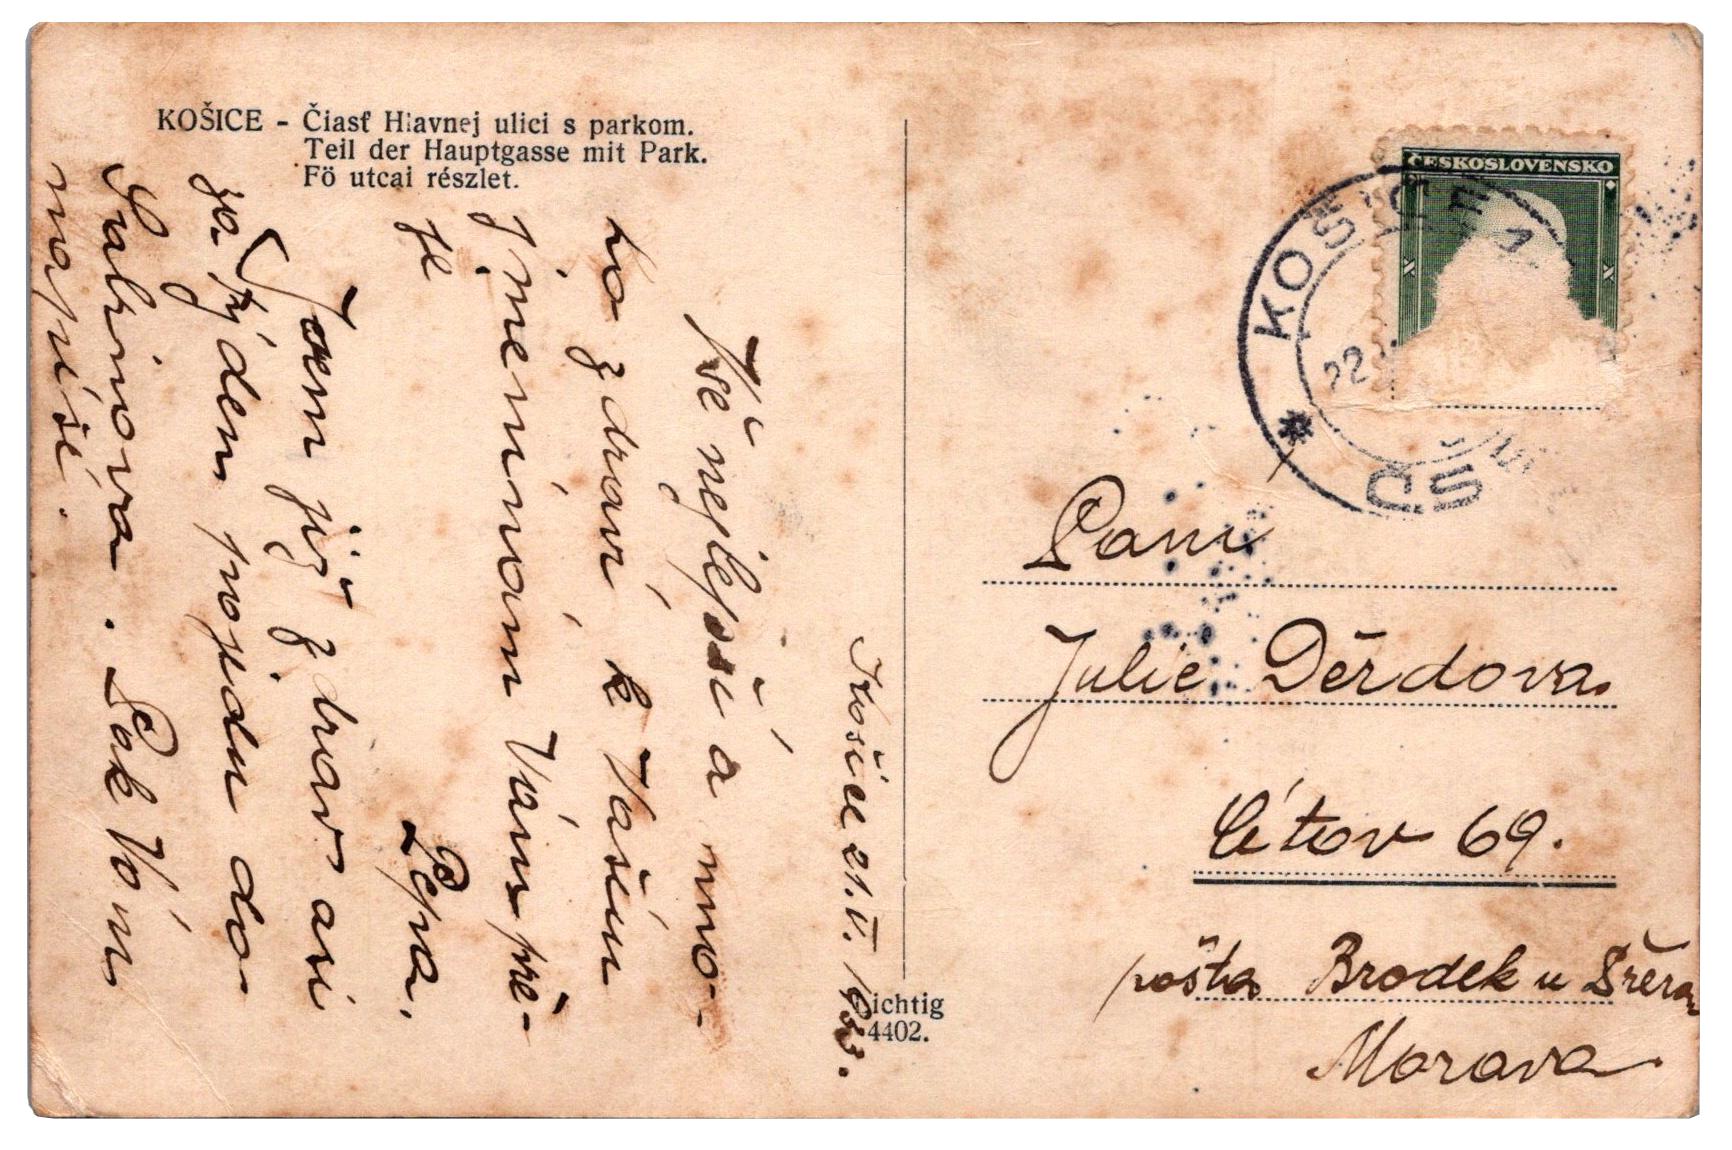 KOŠICE - Čiasť Hlavnej ulici s parkom.
Teil der Hauptgasse mit Park.
Fö utcai részlet.
Košice 21.V. 1933.
Vše nejlepší a mno-
ho zdraví k Vašim
jmeninám Vám pře-
je Pepa.
Jsem již zdráv asi
za týden pojedu do
Sabinova. Pak Vám
napíši.
Lichtig
4402.
ČESKOSLOVENSKO
KOŠICE 1
22
ČS
Paní
Julie Děrdova
Cítov 69.
pošta Brodek u Přerova
Morava.